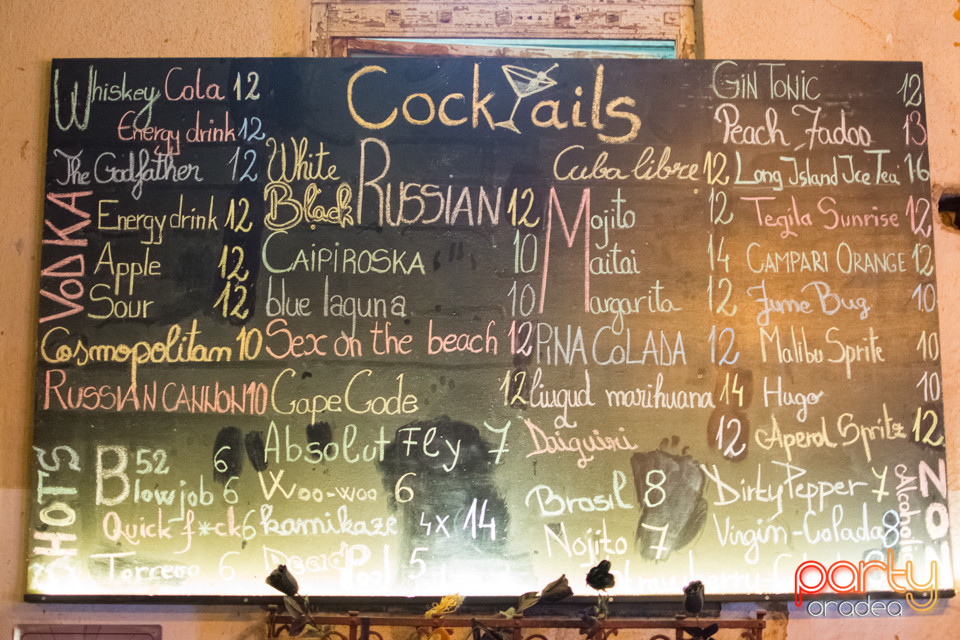 Cocktails
Whiskey Cola 12
Energy drink 12
The Godfather 12
VODKA
Energy drink 12
Apple 12
Sour 12
Cosmopolitan 10
RUSSIAN CANNON 10
SHOTS
B52 6
Blowjob 6
Quick f*ck 6
Torcero 6
White
Black RUSSIAN 12
CAIPIROSKA 10
blue laguna 10
Sex on the beach 12
Cape Code 12
Absolut Fly 7
Woo-woo 6
kamikaze 4x 14
5
Cuba libre 12
Mojito 12
Maitai 14
Margarita 12
PINA COLADA 12
liugud marihuana 14
Daiguiri 12
Brasil 8
Nojito 7
GIN TONIC 12
Peach Fadoo 13
Long Island Ice Tea 16
Tegila Sunrise 12
CAMPARI ORANGE 12
June Bug 10
Malibu Sprite 10
Hugo 10
Aperol Spritz 12
NON
Dirty Pepper 7
Virgin-Colada 8
party
oradea